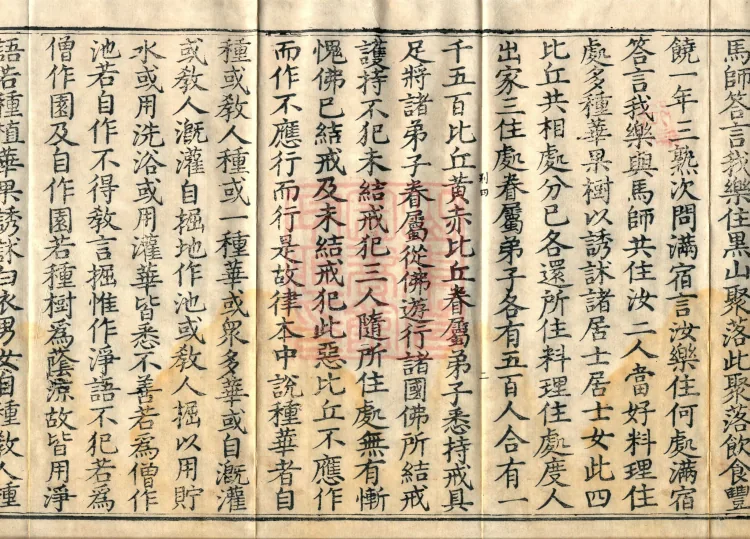 馬師答言我樂住黒山聚落此聚落飲食豐
饒一年二熟次問滿宿言汝樂住何處滿宿
答言我樂與馬師共住汝二人當好料理住
處多種華果樹以誘訹諸居士居士女此四
比丘共相處分已各還所住料理住處度人
出家三住處眷屬弟子各有五百人合有一
千五百比丘黃赤比丘眷屬弟子悉持戒具
足將諸弟子眷屬從佛遊行諸國佛所結戒
護持不犯未結戒犯三人隨所住處無有慚
愧佛已結戒及未結戒犯此惡比丘不應作
而作不應行而行是故律本中說種華者自
種或教人種或一種華或衆多華或自漑灌
或教人漑灌自掘地作池或教人掘以用貯
水或用洗浴或用灌華皆悉不善若為僧作
池若自作不得教言掘惟作淨語不犯若為
僧作園及自作園若種樹為蔭涼故皆用淨
語若種植華果誘訹白衣男女自種教人種